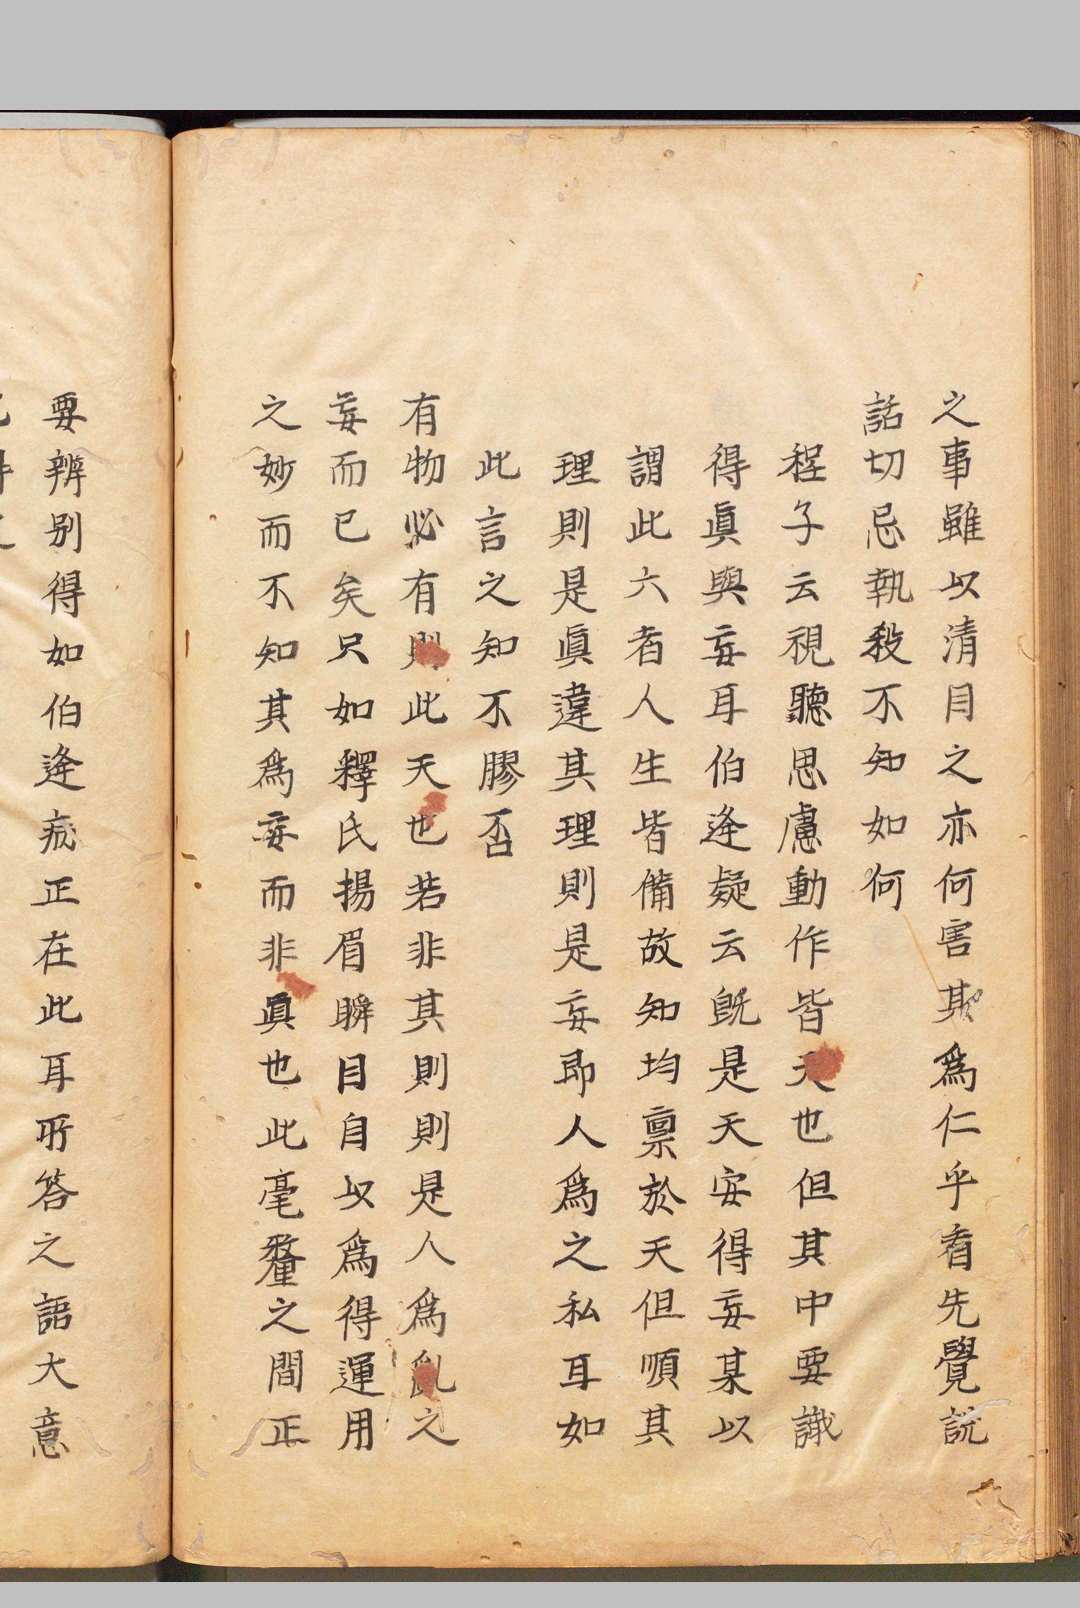 之事雖以清目之亦何害其爲仁乎看先覺說
話切忌執殺不知如何
程子云視聽思慮動作皆天也但其中要識
得眞與妄耳伯逢疑云旣是天安得妄某以
謂此六者人生皆備故知均稟於天但順其
理則是眞違其理則是妄即人爲之私耳如
此言之知不膠否
有物必有則此天也若非其則則是人爲亂之
妄而已矣只如釋氏揚眉瞬目自以爲得運用
之妙而不知其爲妄而非眞也此毫釐之間正
要辨别得如伯逢病正在此耳所答之語大意